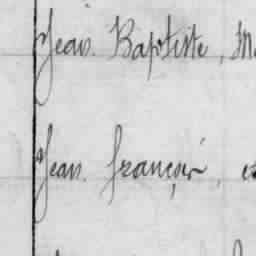 Jean. Baptiste, M
Jean. françois, e